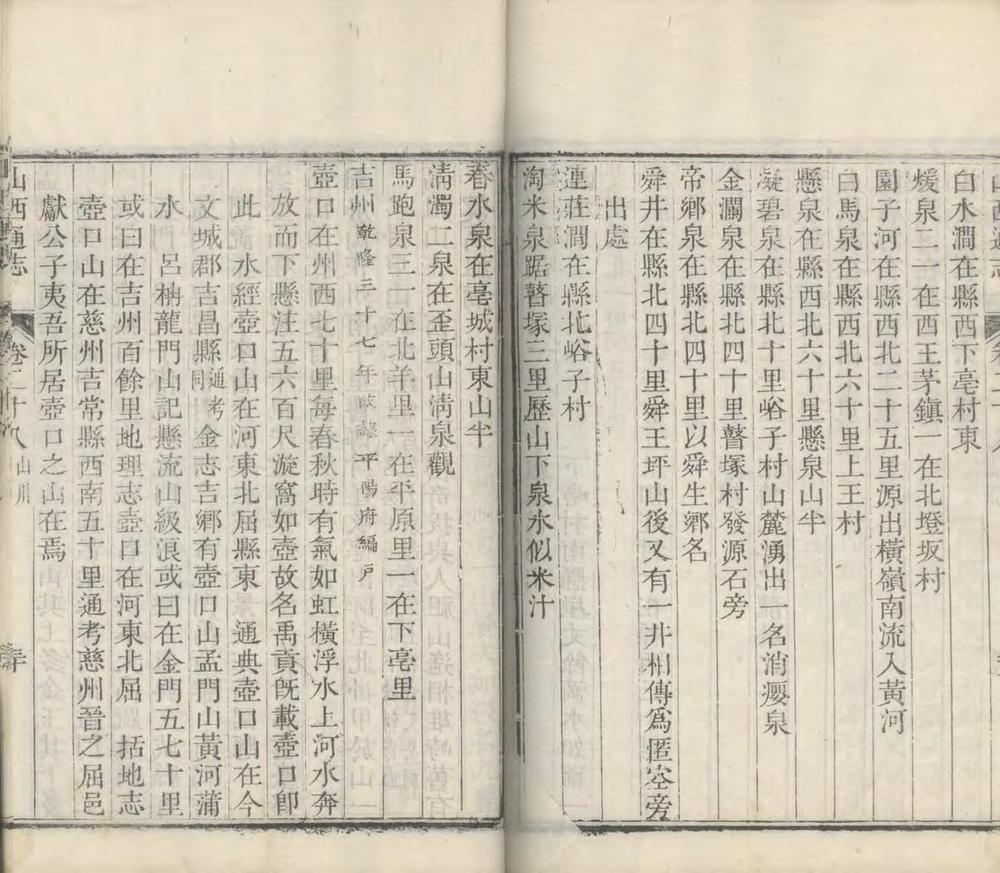 白水澗在縣西下亳村東
煖泉二一在西王茅鎮一在北墱坂村
圓子河在縣西北二十五里源出橫嶺南流入黃河
白馬泉在縣西北六十里上王村
懸泉在縣西北六十里懸泉山半
凝碧泉在縣北十里峪子村山麓湧出一名消癭泉
金瀾泉在縣北四十里瞽塚村發源石旁
帝鄉泉在縣北四十里以舜生鄉名
舜井在縣北四十里舜王坪山後又有一井相傳爲匿空旁
出處
連莊澗在縣北峪子村
淘米泉踞瞽塚三里歷山下泉水似米汁
春水泉在亳城村東山半
清濁二泉在歪頭山清泉觀
馬跑泉三一在北羊里一在平原里一在下亳里
吉州乾隆三十七年改隸平陽府編戶
壺口在州西七十里每春秋時有氣如虹橫浮水上河水奔
放而下懸注五六百尺漩窩如壺故名禹貢旣載壺口卽
此 水經壺口山在河東北屈縣東 通典壺口山在今
文城郡吉昌縣通考同 金志吉鄉有壺口山孟門山黃河蒲
水 呂柟龍門山記懸流山級浪或曰在金門五七十里
或曰在吉州百餘里地理志壺口在河東北屈 括地志
壺口山在慈州吉常縣西南五十里通考慈州晉之屈邑
獻公子夷吾所居壺口之山在焉
山西通志 卷二十八 山川 三十